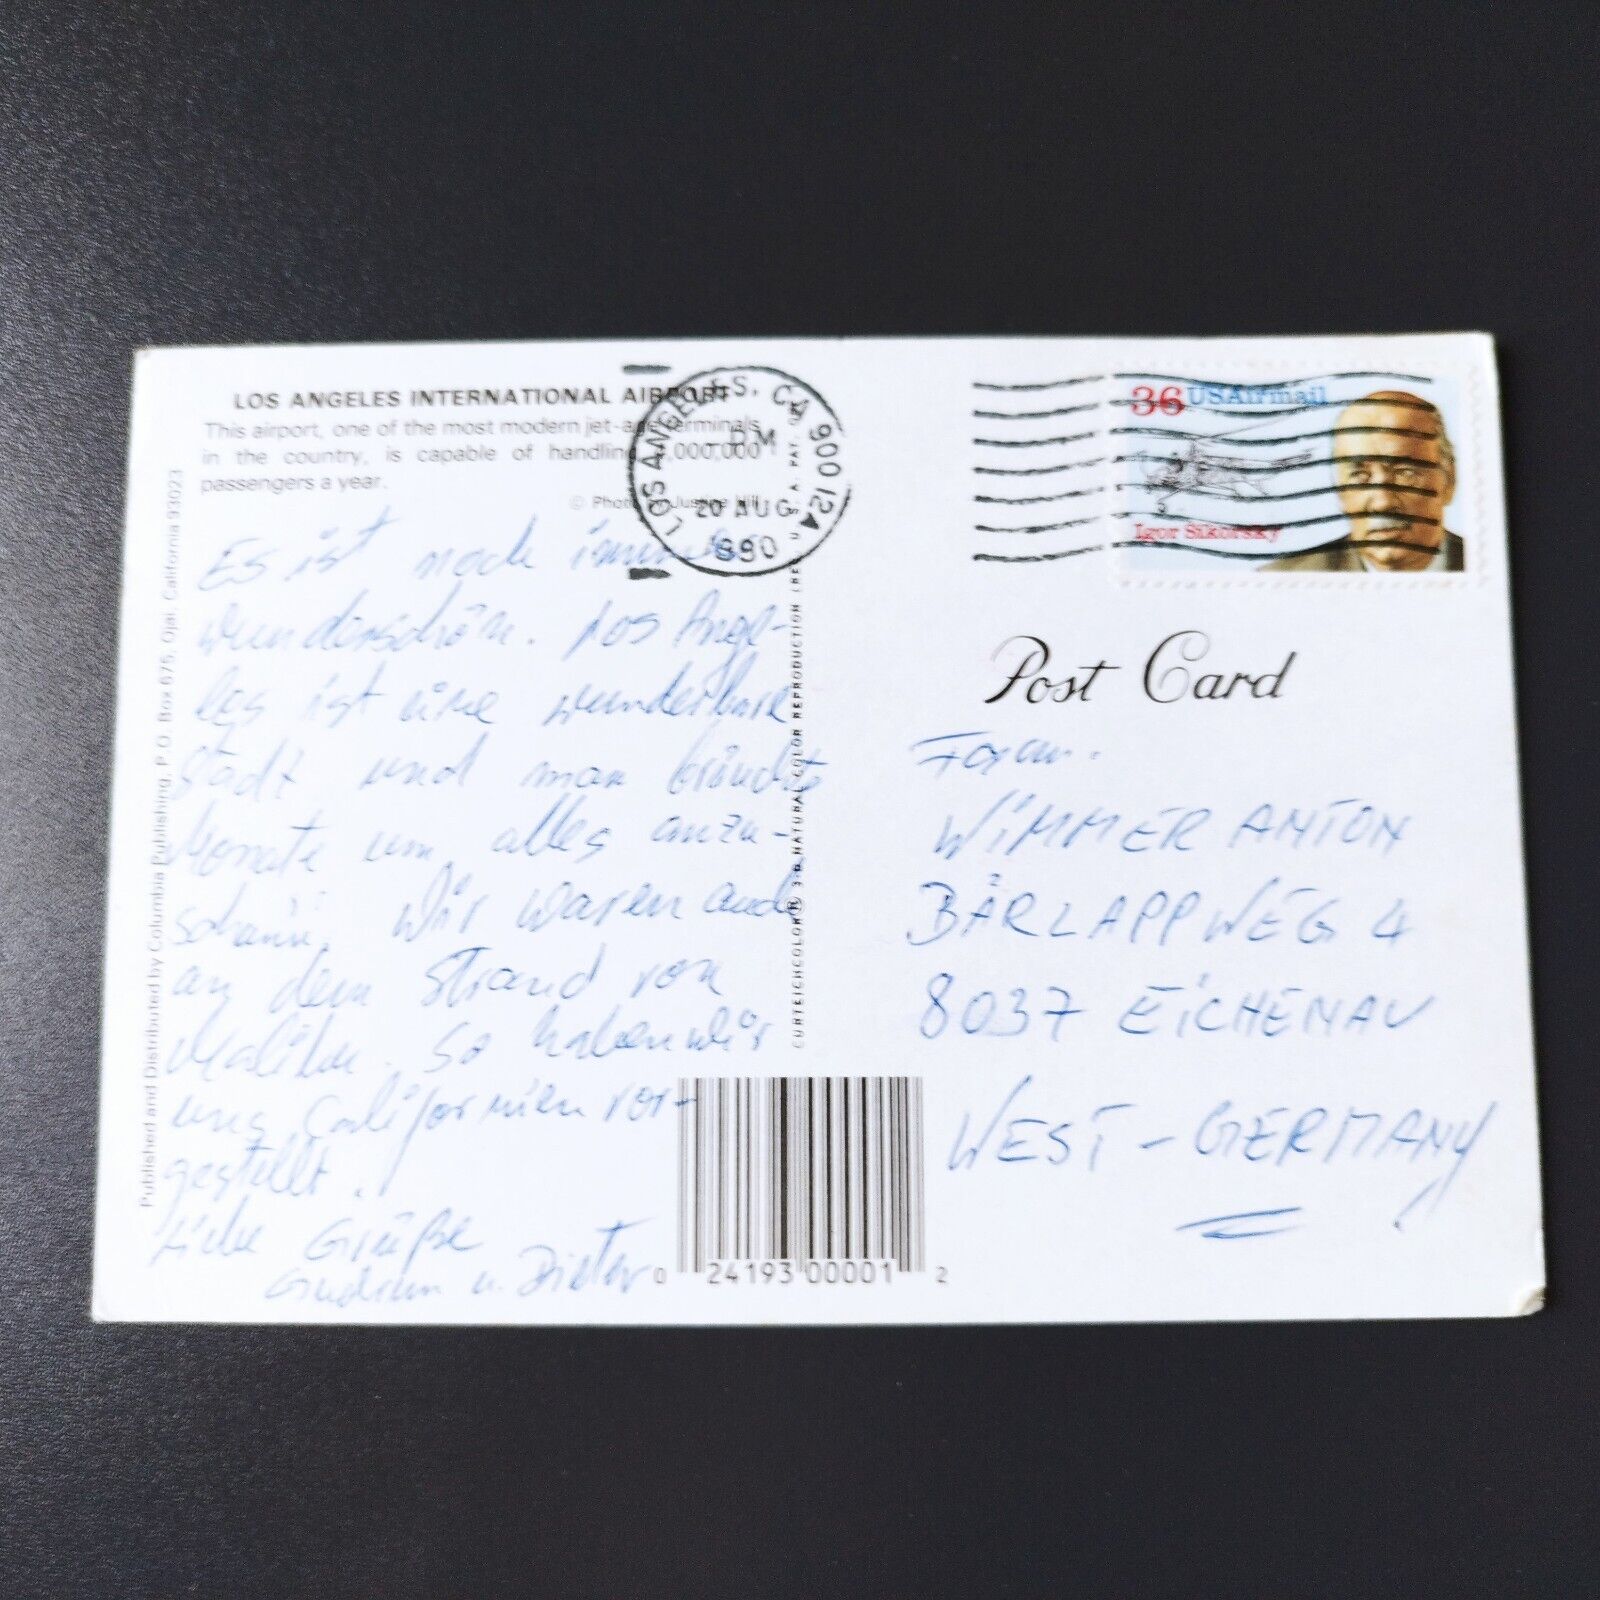 LOS ANGELES INTERNATIONAL AIRPORT
This airport, one of the most modern jet-age terminals
in the country, is capable of handling ,000,000
passengers a year.
© Photo Justine Hill
LOS ANGELES, CA 900 12A
PM
20 AUG
1990
U.S.A.
36 USAirmail
Igor Sikorsky
Post Card
Es ist noch immer
wunderschön. Los Ange-
les ist eine wunderbare
Stadt und man bräuchte
Monate um alles anzu-
schauen. Wir waren auch
an dem Strand von
Malibu. So haben wir
uns Californien vor-
gestellt.
Liebe Grüße
Gudrun u. Dieter
Fam.
WIMMER ANTON
BÄRLAPPWEG 4
8037 EICHENAU
WEST-GERMANY
Published and Distributed by Columbia Publishing, P.O. Box 675, Ojai, California 93023
CURTEICHCOLOR® 3-D NATURAL COLOR REPRODUCTION
0 24193 00001 2